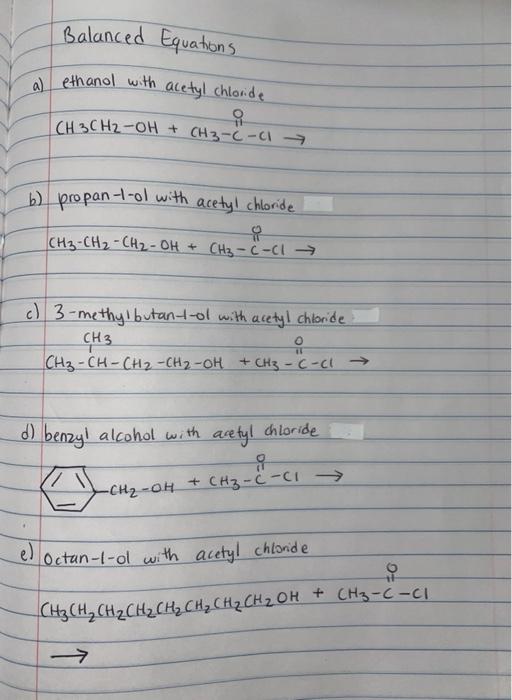 Balanced Equations
a) ethanol with acetyl chloride
O
CH3CH2-OH + CH3-C-Cl →
b) propan-1-ol with acetyl chloride
O
CH3-CH2-CH2-OH + CH3-C-Cl →
c) 3-methylbutan-1-ol with acetyl chloride
CH3 O
CH3-CH-CH2-CH2-OH + CH3-C-Cl →
d) benzyl alcohol with acetyl chloride
O
-CH2-OH + CH3-C-Cl →
e) octan-1-ol with acetyl chloride
O
CH3CH2CH2CH2CH2CH2CH2CH2OH + CH3-C-Cl
→